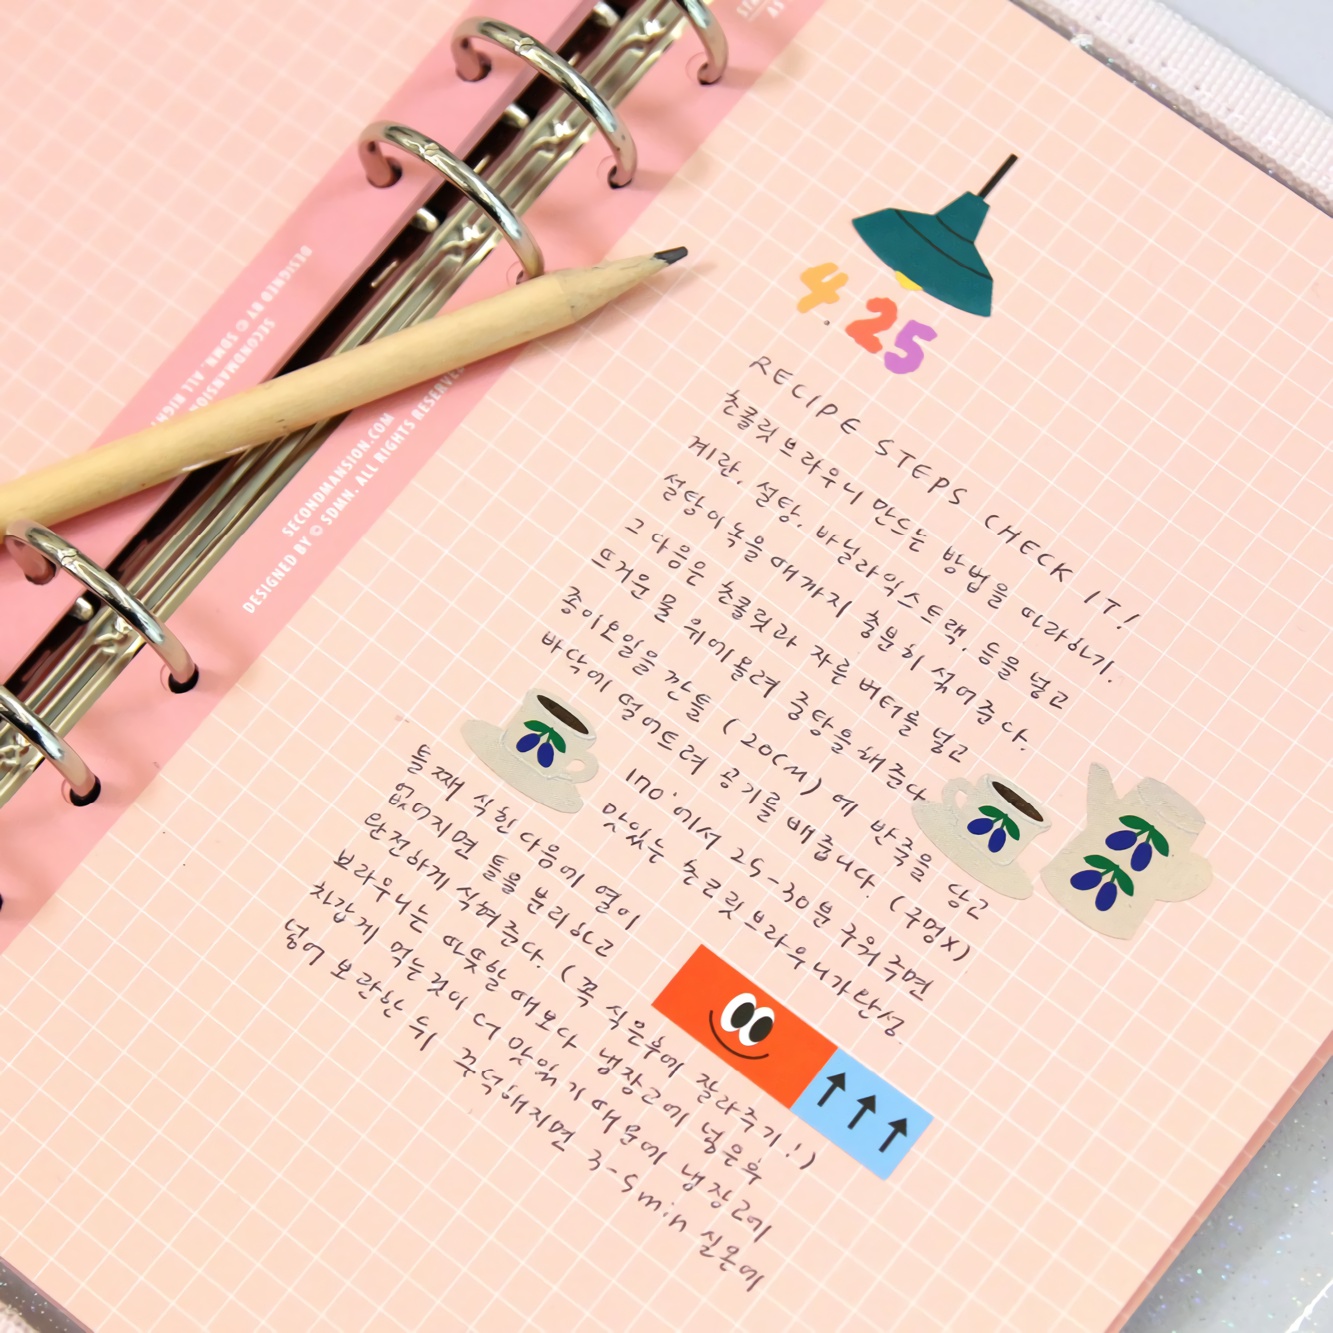 4.25
RECIPE STEPS CHECK IT!
초콜릿 브라우니 만드는 방법을 따라하기.
계란, 설탕, 바닐라익스트랙, 등을 넣고
설탕이 녹을 때까지 충분히 섞어준다.
그 다음은 초콜릿과 자른 버터를 넣고
뜨거운 물 위에 올려 중탕을 해준다
종이호일을 깐 틀 (20CM) 에 반죽을 담고
바닥에 떨어트려 공기를 빼줍니다. (구멍X)
170°에서 25-30분 구워주면
맛있는 초코릿 브라우니가 완성.
틀 째 식힌 다음에 열이
없어지면 틀을 분리하고
완전하게 식혀준다. (꼭 식은후에 잘라주기!)
브라우니는 따뜻할 때보다 냉장고에 넣은후
차갑게 먹는것이 더 맛있기 때문에 냉장고에
넣어 보관한 뒤 꾸덕해지면 3-5min 실온에
SECONDMANSION.COM
DESIGNED BY © SDMN. ALL RIGHTS RESERVED
SECONDMANSION
DESIGNED BY © SDMN. ALL RIGH